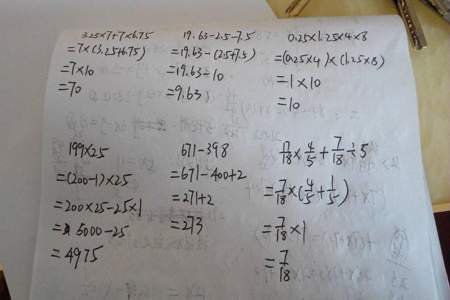 3.25×7+7×6.75
=7×(3.25+6.75)
=7×10
=70
19.63-2.5-7.5
=19.63-(2.5+7.5)
=19.63-10
=9.63
0.25×1.25×4×8
=(0.25×4)×(1.25×8)
=1×10
=10
199×25
=(200-1)×25
=200×25-25×1
=5000-25
=4975
671-398
=671-400+2
=271+2
=273
7/18×4/5+7/18÷5
=7/18×(4/5+1/5)
=7/18×1
=7/18